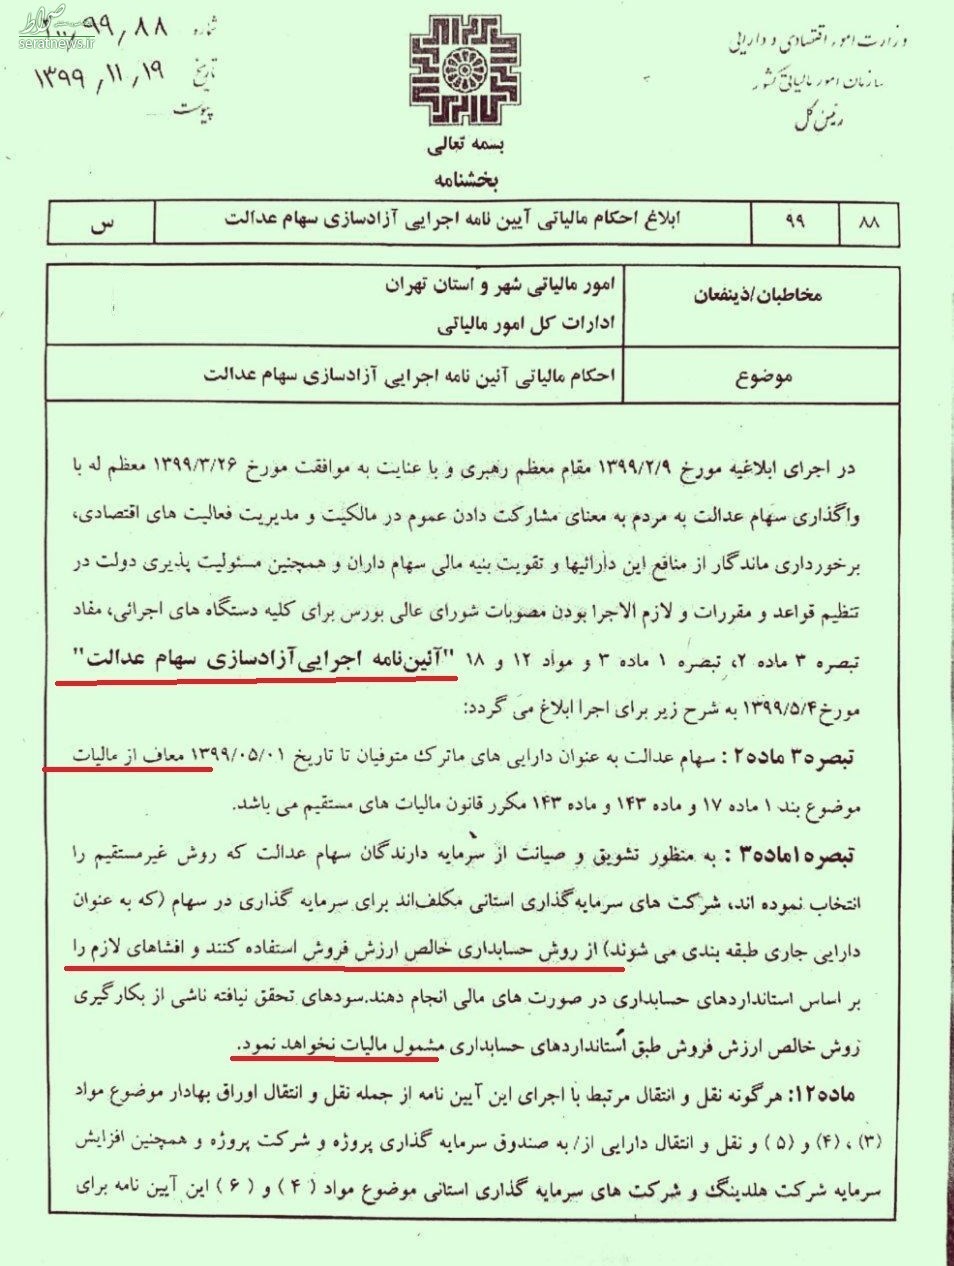 وزارت امور اقتصادی و دارایی
سازمان امور مالیاتی کشور
رئیس کل
شماره ۲۰۰/۹۹/۸۸
تاریخ ۱۳۹۹/۱۱/۱۹
پیوست
صراط
seratnews.ir
بسمه تعالی
بخشنامه
۸۸ ۹۹ ابلاغ احکام مالیاتی آیین نامه اجرایی آزادسازی سهام عدالت س
مخاطبان/ذینفعان
امور مالیاتی شهر و استان تهران
ادارات کل امور مالیاتی
موضوع احکام مالیاتی آئین نامه اجرایی آزادسازی سهام عدالت
در اجرای ابلاغیه مورخ ۱۳۹۹/۲/۹ مقام معظم رهبری و با عنایت به موافقت مورخ ۱۳۹۹/۳/۲۶ معظم له با
واگذاری سهام عدالت به مردم به معنای مشارکت دادن عموم در مالکیت و مدیریت فعالیت های اقتصادی،
برخورداری ماندگار از منافع این دارائیها و تقویت بنیه مالی سهام داران و همچنین مسئولیت پذیری دولت در
تنظیم قواعد و مقررات و لازم الاجرا بودن مصوبات شورای عالی بورس برای کلیه دستگاه های اجرائی، مفاد
تبصره ۳ ماده ۲، تبصره ۱ ماده ۳ و مواد ۱۲ و ۱۸ "آئین‌نامه اجرایی‌آزادسازی سهام عدالت"
مورخ۱۳۹۹/۵/۴ به شرح زیر برای اجرا ابلاغ می گردد:
تبصره۳ ماده۲ : سهام عدالت به عنوان دارایی های ماترک متوفیان تا تاریخ ۱۳۹۹/۰۵/۰۱ معاف از مالیات
موضوع بند ۱ ماده ۱۷ و ماده ۱۴۳ و ماده ۱۴۳ مکرر قانون مالیات های مستقیم می باشد.
تبصره۱ماده۳ : به منظور تشویق و صیانت از سرمایه دارندگان سهام عدالت که روش غیرمستقیم را
انتخاب نموده اند، شرکت های سرمایه‌گذاری استانی مکلف‌اند برای سرمایه گذاری در سهام (که به عنوان
دارایی جاری طبقه بندی می شوند) از روش حسابداری خالص ارزش فروش استفاده کنند و افشاهای لازم را
بر اساس استانداردهای حسابداری در صورت های مالی انجام دهند.سودهای تحقق نیافته ناشی از بکارگیری
روش خالص ارزش فروش طبق استانداردهای حسابداری مشمول مالیات نخواهد نمود.
ماده۱۲: هرگونه نقل و انتقال مرتبط با اجرای این آیین نامه از جمله نقل و انتقال اوراق بهادار موضوع مواد
(۳) ، (۴) و (۵ ) و نقل و انتقال دارایی از/ به صندوق سرمایه گذاری پروژه و شرکت پروژه و همچنین افزایش
سرمایه شرکت هلدینگ و شرکت های سرمایه گذاری استانی موضوع مواد ( ۴ ) و ( ۶ ) این آیین نامه برای